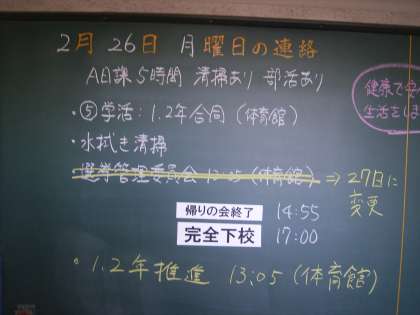 2月 26日 月曜日の連絡
A日課 5時間 清掃あり 部活あり
・⑤学活：1.2年合同（体育館）
・水拭き清掃
選挙管理委員会 13:05（体育館）⇒27日に
変更
帰りの会終了 14:55
完全下校 17:00
・1.2年推進 13:05（体育館）
健康で安
生活をしま